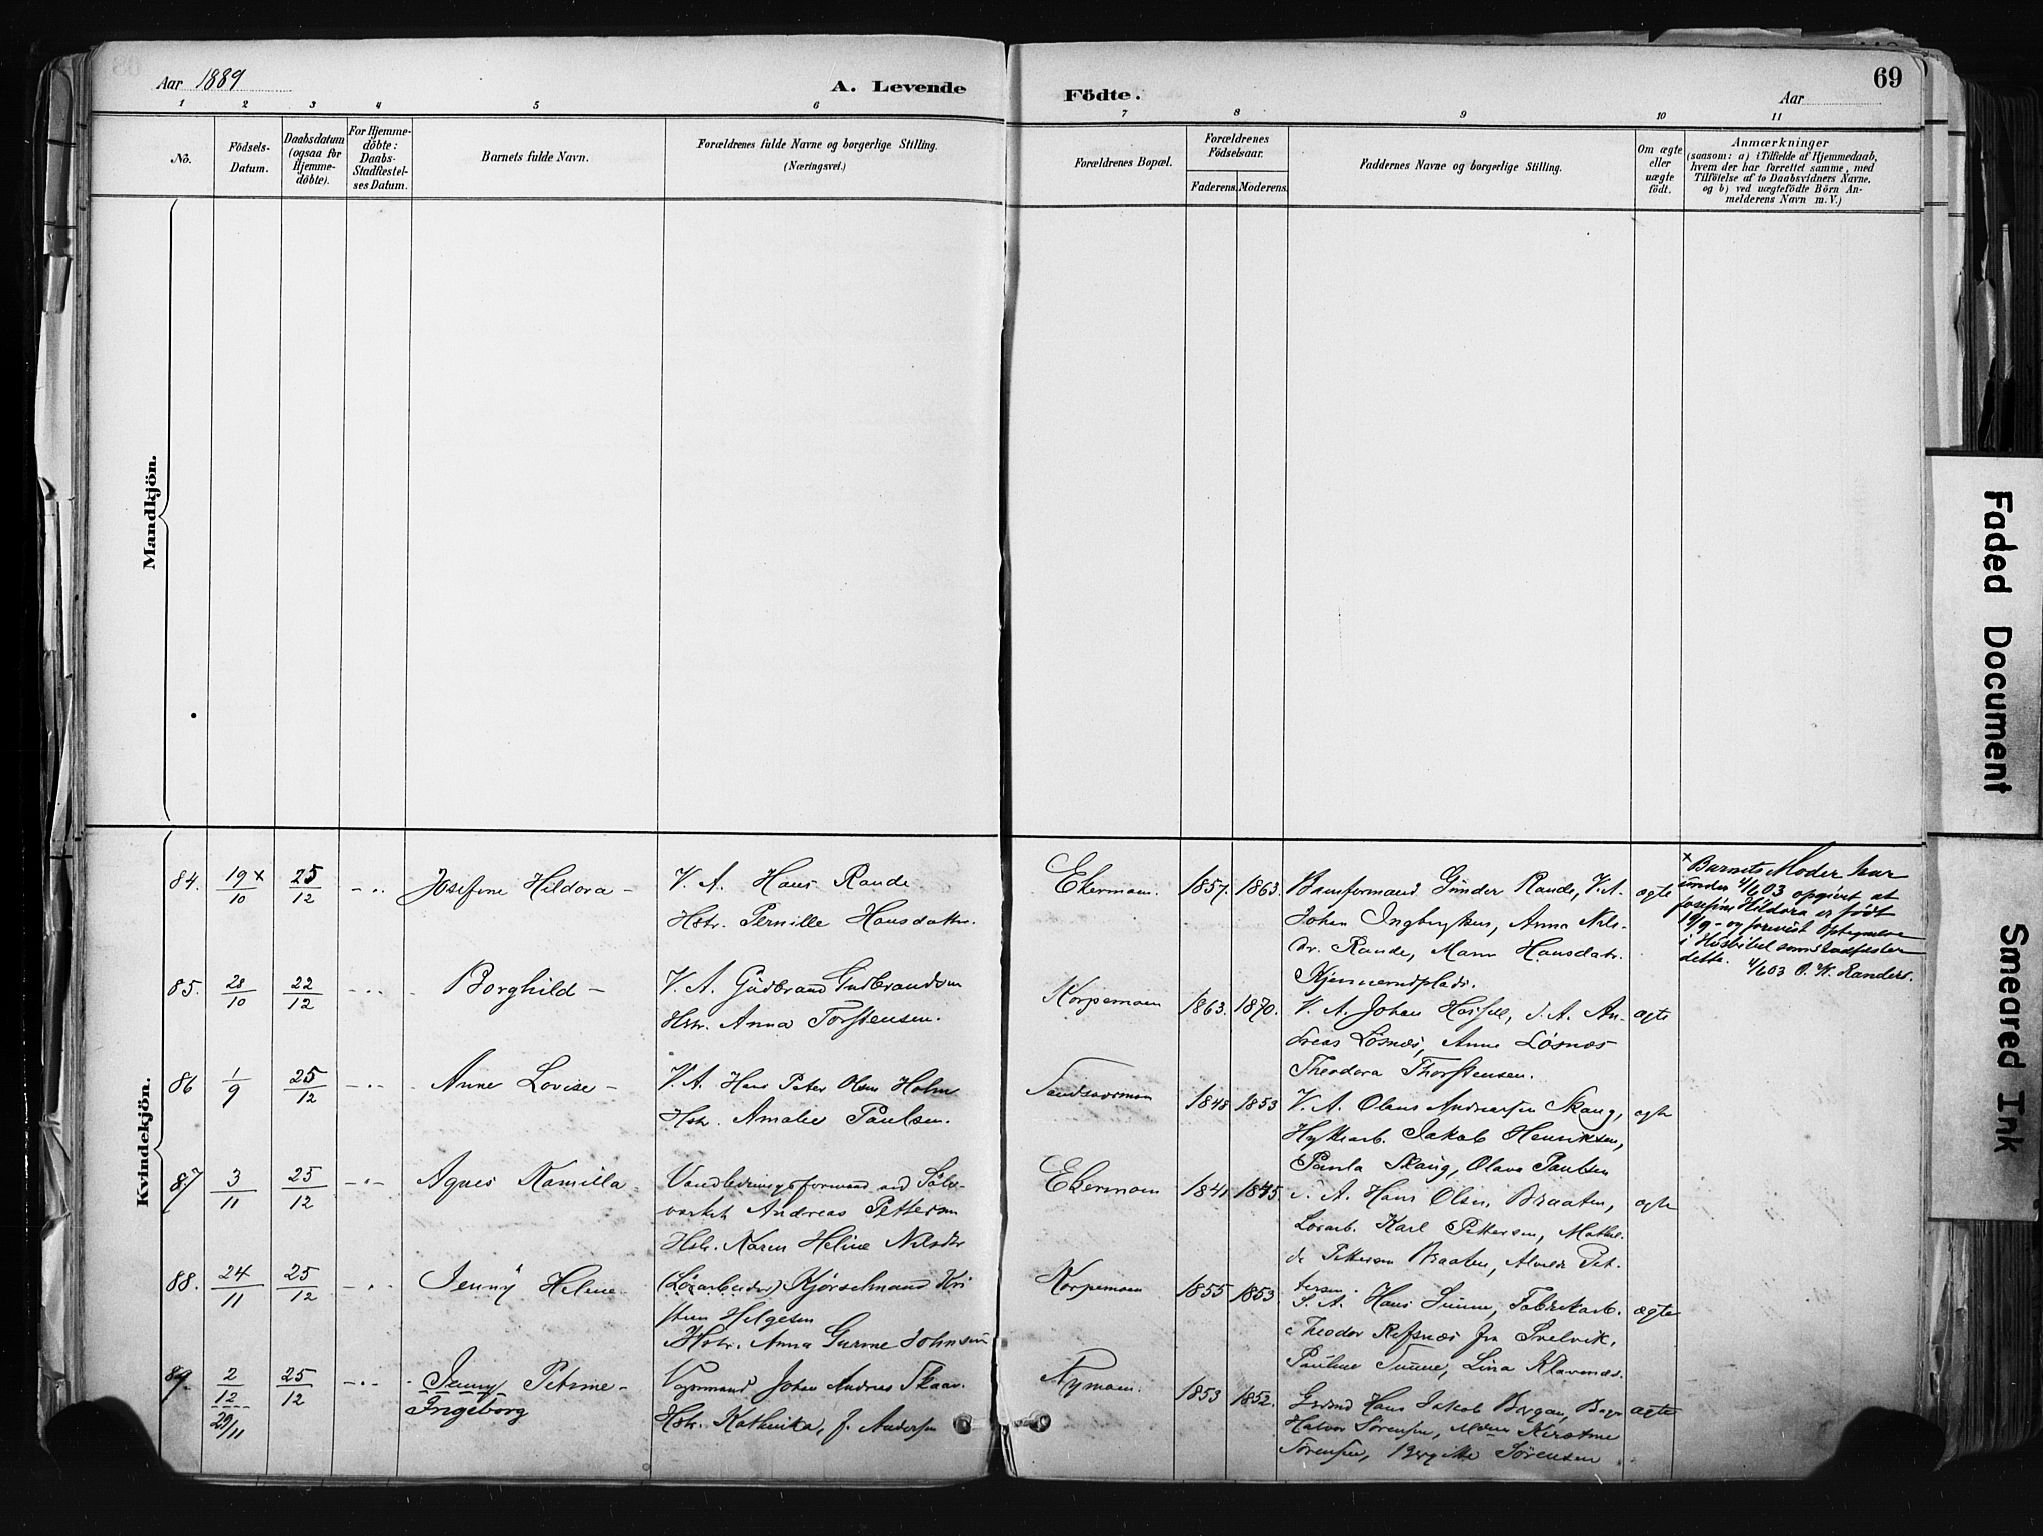 69
Aar 1889
A. Levende
Födte.
Aar
1 2 3 4 5 6 7 8 9 10 11
No.
Födsels-
Datum.
Daabsdatum
(ogsaa for
Hjemme-
döbte).
For Hjemme-
döbte:
Daabs-
Stadfæstel-
ses Datum.
Barnets fulde Navn.
Forældrenes fulde Navne og borgerlige Stilling.
(Næringsvei.)
Forældrenes Bopæl.
Forældrenes
Födselsaar.
Faderens. Moderens.
Faddernes Navne og borgerlige Stilling.
Om ægte
eller
uægte
födt.
Anmærkninger
(saasom: a) i Tilfælde af Hjemmedaab,
hvem der har forrettet samme, med
Tilföielse af to Daabsvidners Navne,
og b) ved uægtefödte Börn An-
melderens Navn m. V.)
Mandkjön.
Kvindekjön.
84. 19/10 x 25/12 Josefine Hildora -
V. A. Hans Rande
Hstr. Pernille Hansdatter.
Ekermoen. 1857. 1863.
Gunder Rande, V. A.
Johan Anna Nils-
dr. Rande, Maren Hansdatr.
ægte
x Barnets Moder har
under 4/6 03 opgivet at
Josefine Hildora er født
19/9 - og forevist Optegnelse
i Husbibel som stadfæster
dette. 4/6 03 O. K. Randers.
85. 28/10 22/12 Borghild -
V. A. Gudbrand Gudbrandsen
Hstr. Anna Torstensen.
Korpemoen 1863. 1870.
V. A. Johan A. An-
dreas Løsnæs, Anne Løsnæs
Theodora Thorstensen.
ægte
86 1/9 25/12 Anne Lovise -
V. A. Hans Peter Olsen Holm
Hstr. Amalie Paulsen.
1848 1853
V. A. Olaus Andreasen Skaug,
Hytteab. Jakob Henriksen,
Paula Skaug, Olava Paulsen
ægte
87 3/11 25/12 Agnes Kamilla
Vandledningsformand ved Sølv-
værket Andreas Pettersen
Hstr. Karen Heline Nilsdtr
Ekermoen 1841 1845.
A. Hans Olsen Braaten,
Løsarb. Karl Pettersen, Mathil-
de Pettersen Braaten, Alvilde Pet-
tersen.
ægte
88. 24/11 25/12 Jenny Helene
(Løsarbeider) Kjørselmand Kri
stian Helgesen
Hstr. Anna Gurine Johnsen
Korpemoen 1855 1853.
S. A. Hans Fabrikarb.
Theodor Refsnæs fra Svelvik,
Pauline Lina Klavenæs.
ægte
89. 2/12 29/11 25/12 Jenny Petrine -
Ingeborg
Johan Andreas Skaar.
Hstr. Kathinka, f. Andersen
Nymoen. 1853 1852.
Hans Jakob Bergan,
Halvor Sørensen, Maren Kirstine
Sørensen, Birgitte Sørensen
ægte
Faded Document
Smeared Ink